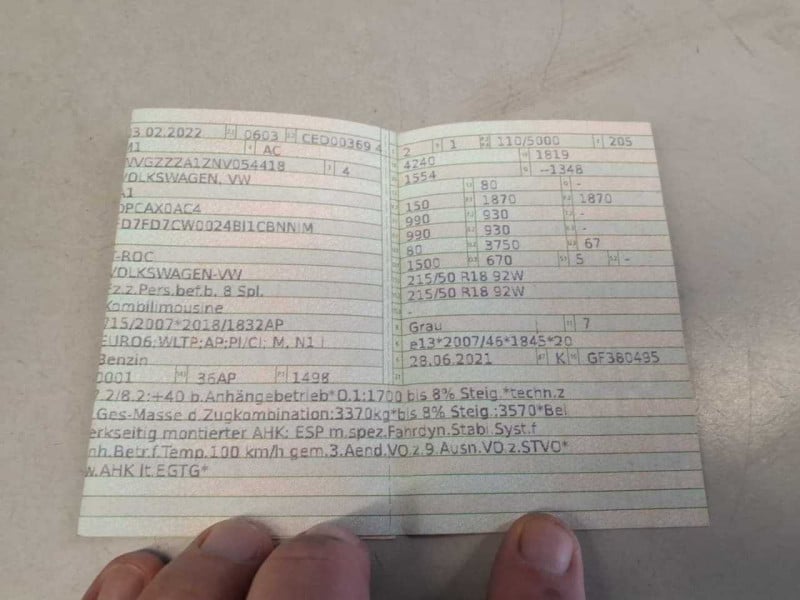 3.02.2022 0603 CED00369 4
M1 AC
VVGZZZA1ZNV054418 4
VOLKSWAGEN, VW
A1
DPCAX0AC4
FD7FD7CW0024BI1CBNNIM
T-ROC
VOLKSWAGEN-VW
Fz.z.Pers.bef.b. 8 Spl.
Kombilimousine
715/2007*2018/1832AP
EURO6;WLTP;AP;PI/CI; M, N1 I
Benzin
0001 36AP 1498
2 1 110/5000 205
4240 1819
1554 --1348
80 -
150 1870 1870
990 930 -
990 930 -
80 3750 67
1500 670 5 -
215/50 R18 92W
215/50 R18 92W
-
Grau 7
e13*2007/46*1845*20
28.06.2021 K GF380495
7.2/8.2:+40 b.Anhängebetrieb*O.1:1700 bis 8% Steig.*techn.z
.Ges-Masse d.Zugkombination:3370kg*bis 8% Steig.:3570*Bei
erkseitig montierter AHK: ESP m.spez.Fahrdyn.Stabi.Syst.f
nh.Betr.f.Temp.100 km/h gem.3.Aend.VO.z.9.Ausn.VO.z.STVO*
w.AHK lt.EGTG*